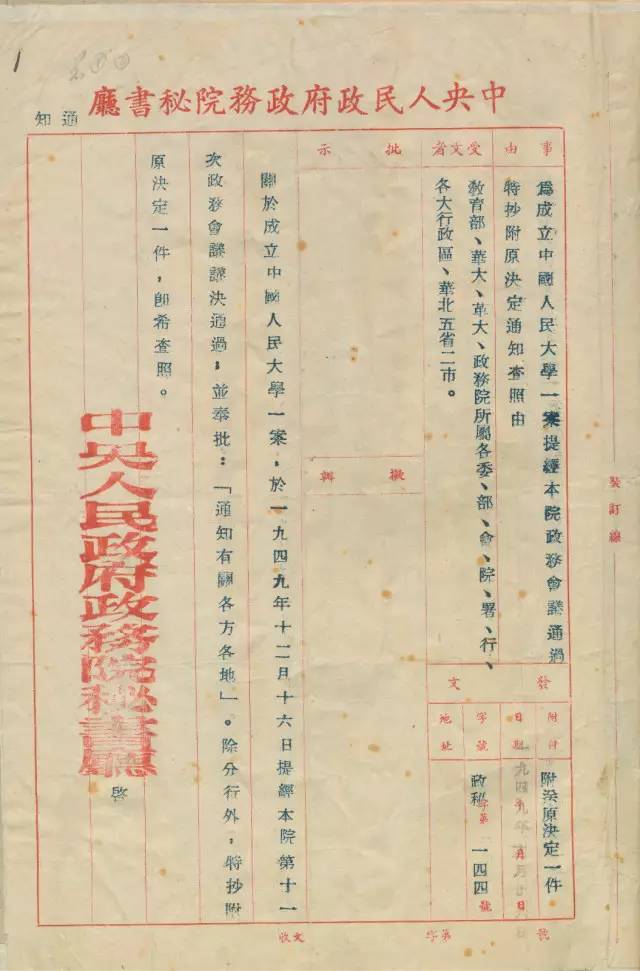 1
中央人民政府政務院秘書廳
通知
事由
爲成立中國人民大學一案提經本院政務會議通過
特抄附原決定通知查照由
受文者
教育部、華大、革大、政務院所屬各委、部、會、院、署、行、
各大行政區、華北五省二市。
發文
附件
附原決定一件
日期
一九四九年月日
字號
政秘字第一四四號
地址
批示
擬辦
關於成立中國人民大學一案，於一九四九年十二月十六日提經本院第十一
次政務會議議決通過，並奉批：「通知有關各方各地」。除分行外，特抄附
原決定一件，即希查照。
中央人民政府政務院秘書廳
啓
裝訂線
收文
字第
號